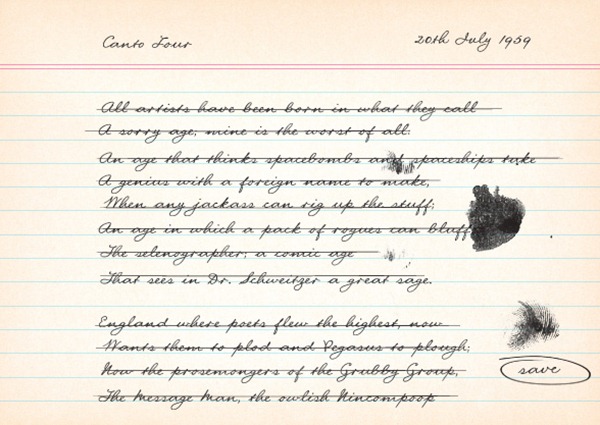 Canto Four
20th July 1959
All artists have been born in what they call
A sorry age; mine is the worst of all:
An age that thinks spacebombs and spaceships take
A genius with a foreign name to make,
When any jackass can rig up the stuff;
An age in which a pack of rogues can bluff
The selenographer; a comic age
That sees in Dr. Schweitzer a great sage.
England where poets flew the highest, now
Wants them to plod and Pegasus to plough;
Now the prosemongers of the Grubby Group,
The Message Man, the owlish Nincompoop
save